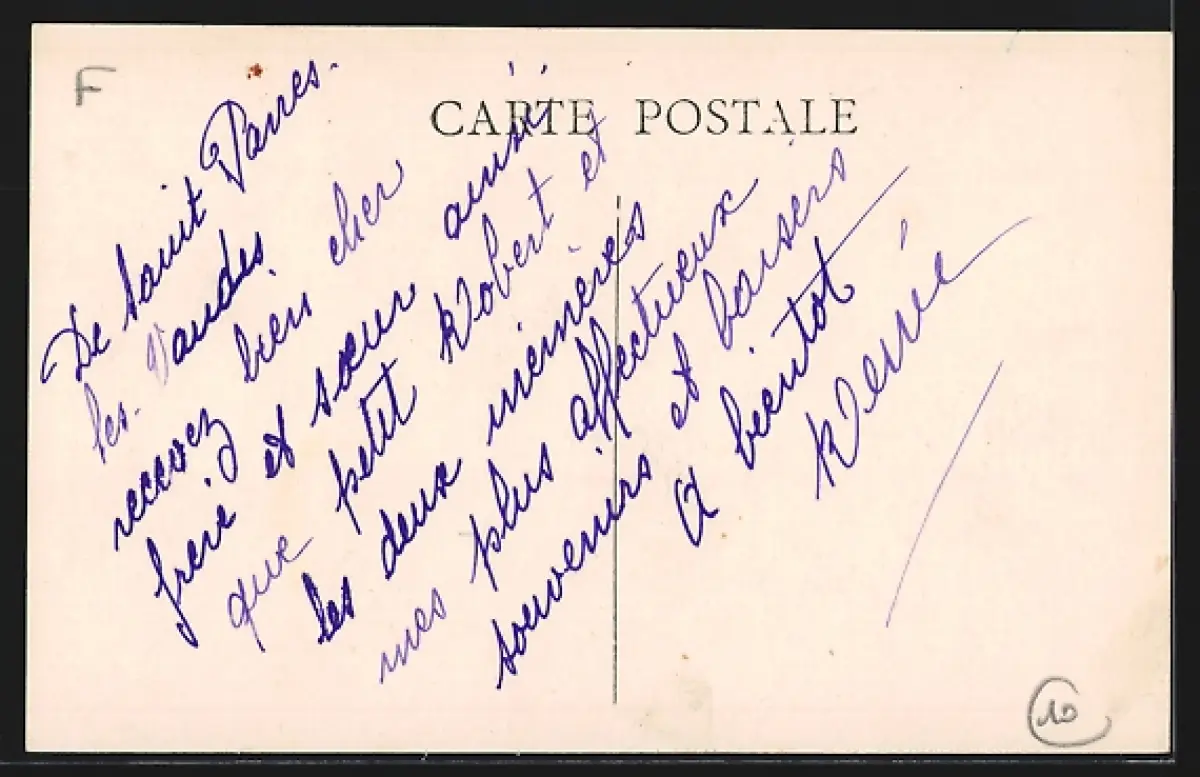 F
CARTE POSTALE
De Saint Parres.
les. Vaudes.
recevez bien cher
frere et sœur ainsi
que petit Robert et
les deux mémères
mes plus affectueux
souvenirs et baisers
a bientot
Renée
10